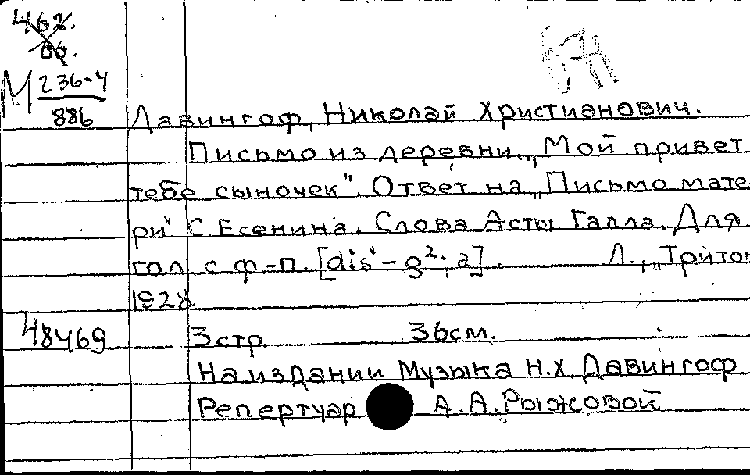 462.
М 236-4
886
Давингоф, Николай Христианович.
Письмо из деревни. „Мой привет
тебе сыночек". Ответ на „Письмо мате
ри" С. Есенина. Слова Асты Галла. Для
гол. с ф-п. [dis¹-g²; a]. Л., „Тритон
1928.
48469 3 стр. 36 см.
На издании Музыка Н.Х. Давингоф
Репертуар А.А. Рыжовой